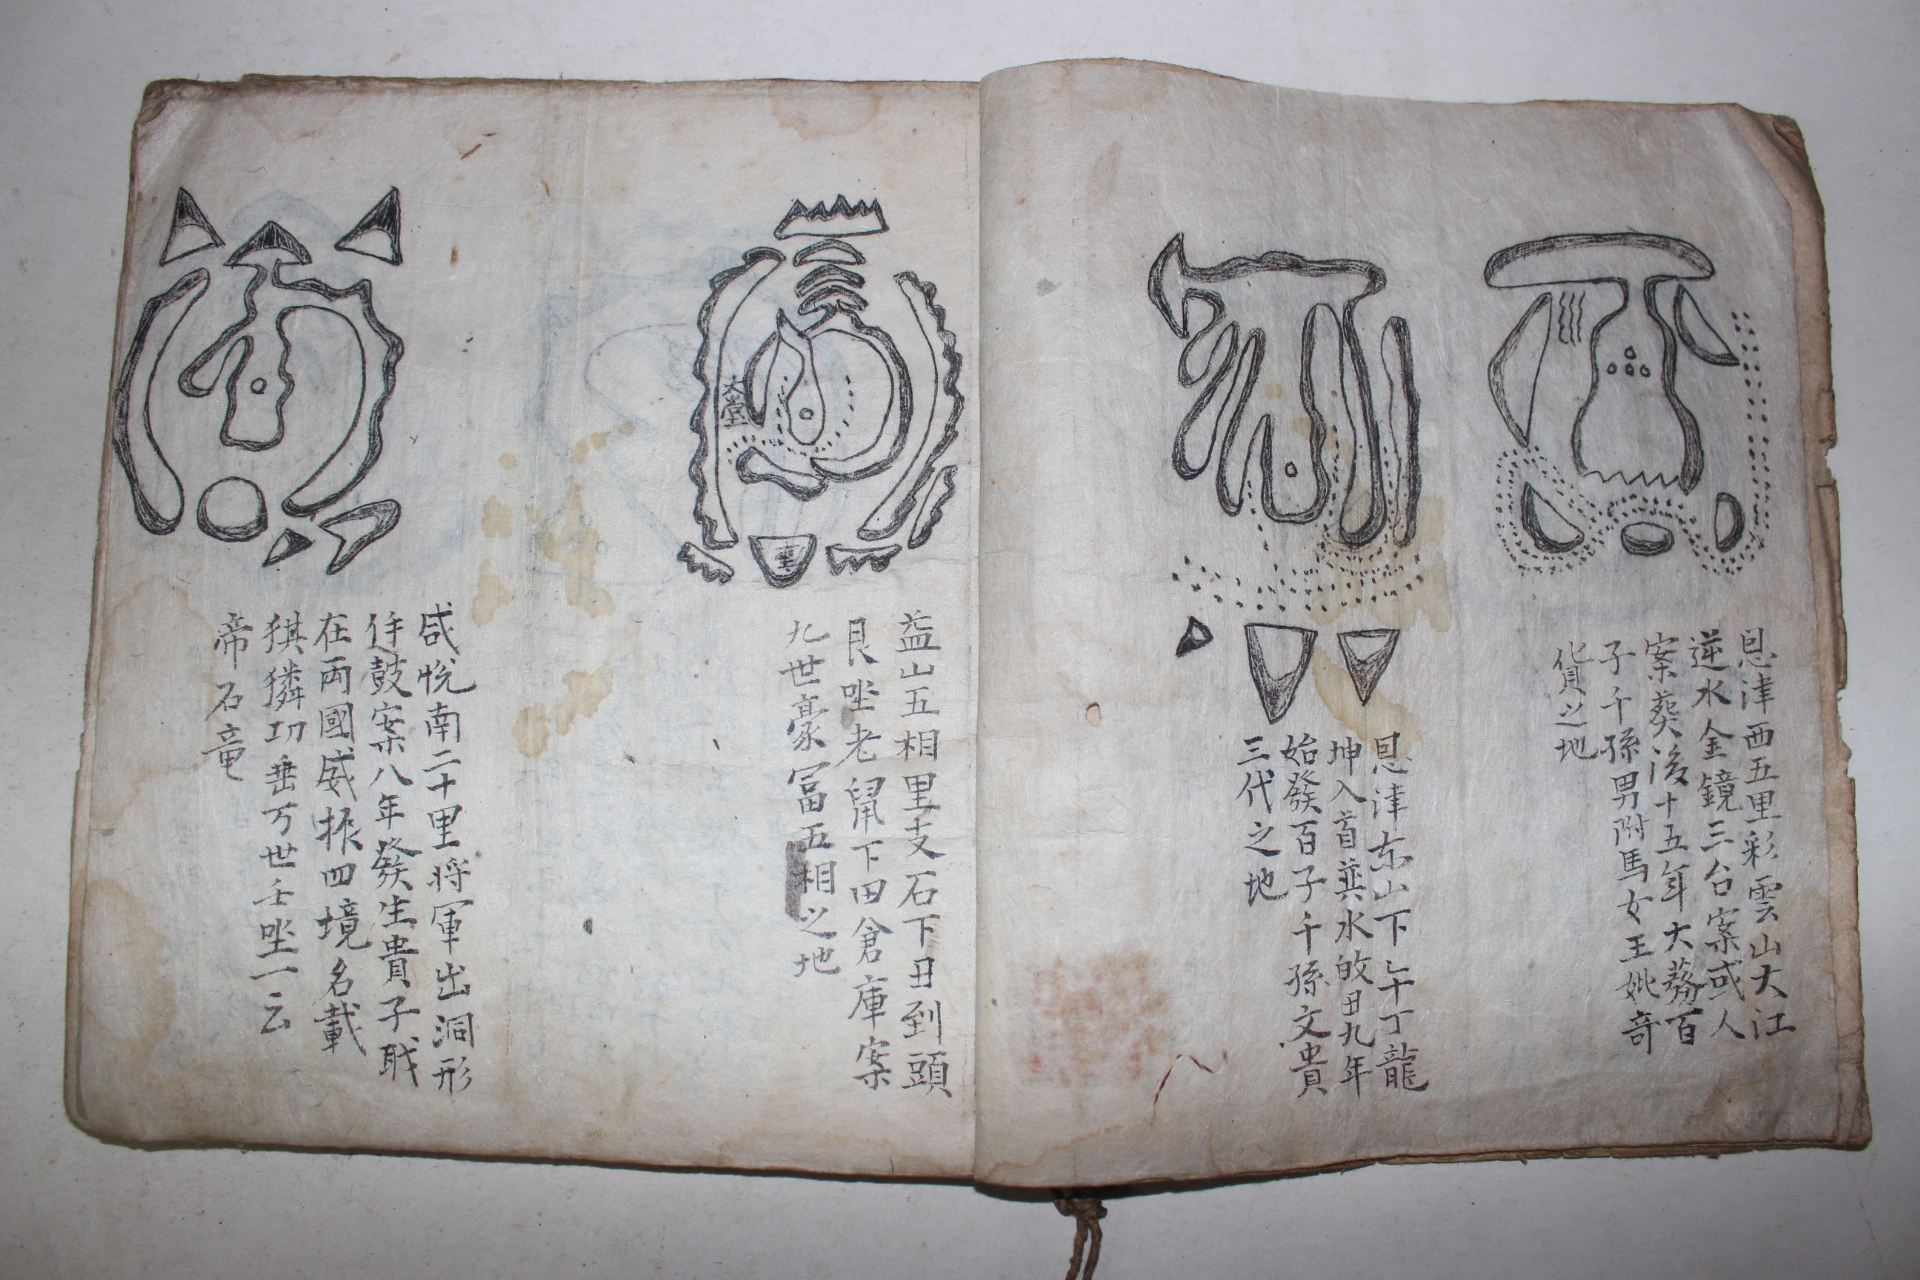 恩津西五里彩雲山大江
逆水金鏡三台案或人
案葬後十五年大蕃百
子千孫男附馬女王妣奇
貨之地
恩津东山下午丁龍
坤入首巽水𢻳丑九年
始發百子千孫文貴
三代之地
大堂
益山五相里支石下丑到頭
艮坐老鼠下田倉庫案
九世豪冨五相之地
咸悅南二十里将軍出洞形
鼓案八年發生貴子
在兩國威振四境名載
猉獜功垂万世壬坐一云
帝石竜